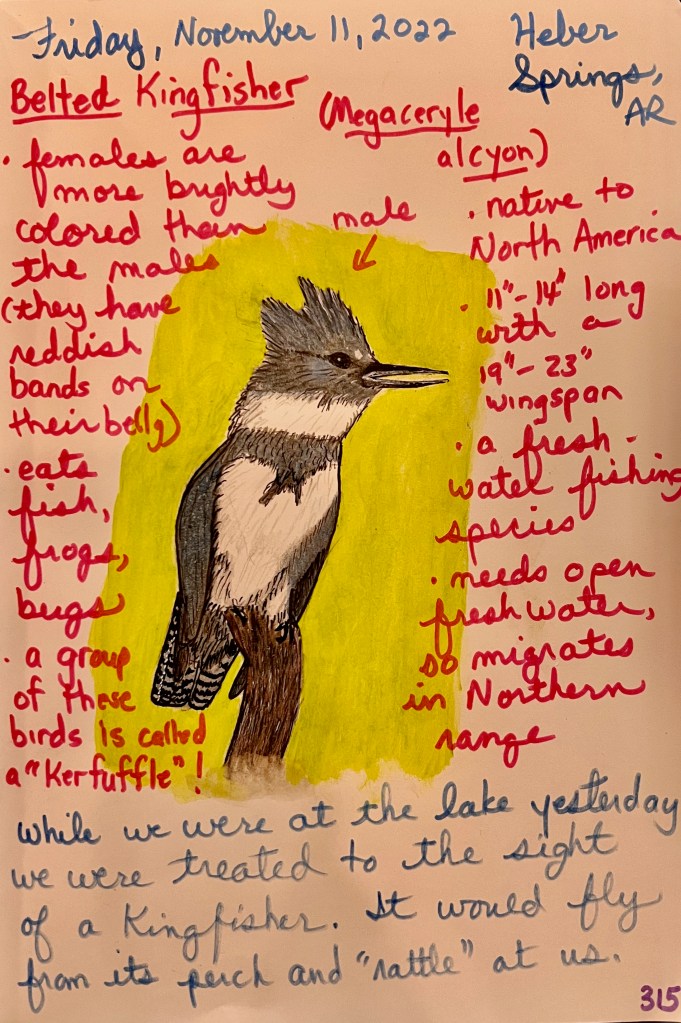 Friday, November 11, 2022
Heber
Springs,
AR
Belted Kingfisher
(Megaceryle
alcyon)
• females are
more brightly
colored than
the males
(they have
reddish
bands on
their belly)
• eats
fish,
frogs,
bugs
• a group
of these
birds is called
a "Kerfuffle"!
male
• native to
North America
• 11"-14" long
with a
19"-23"
wingspan
• a fresh-
water fishing
species
• needs open
fresh water,
so migrates
in Northern
range
While we were at the lake yesterday
we were treated to the sight
of a Kingfisher. It would fly
from its perch and "rattle" at us.
315